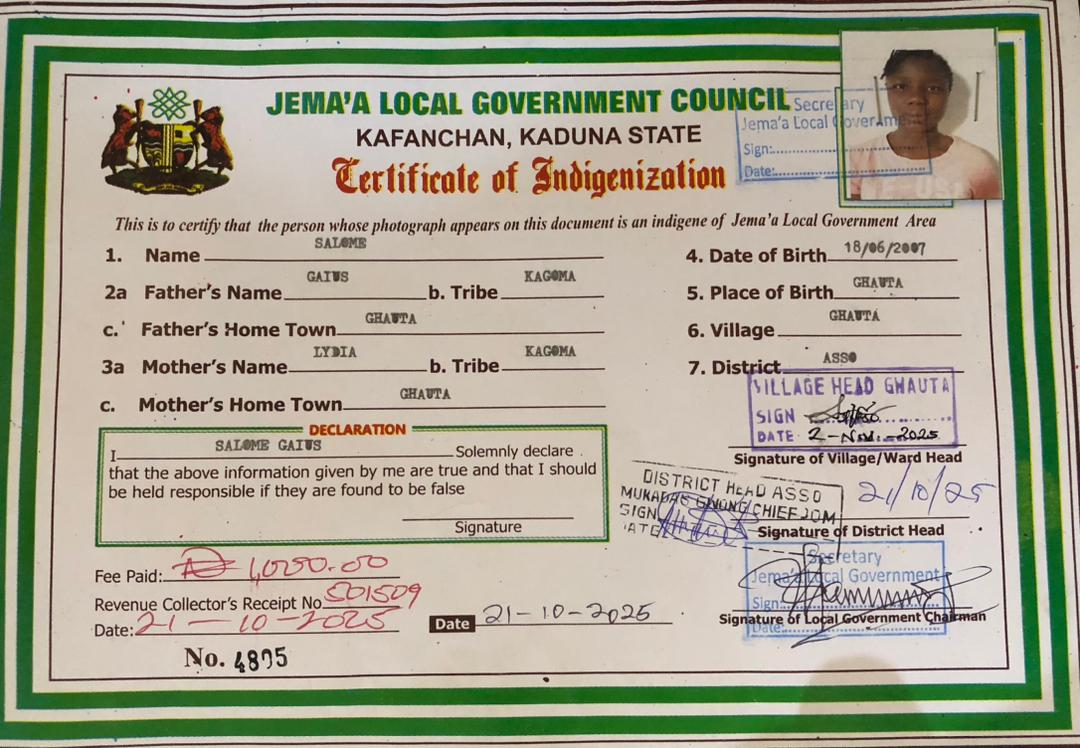 JEMA'A LOCAL GOVERNMENT COUNCIL
KAFANCHAN, KADUNA STATE
Certificate of Indigenization
Secretary
Jema'a Local Governme
Sign:
Date:
This is to certify that the person whose photograph appears on this document is an indigene of Jema'a Local Government Area
1. Name SALOME
2a Father's Name GAIUS b. Tribe KAGOMA
c. Father's Home Town GHAUTA
3a Mother's Name LYDIA b. Tribe KAGOMA
c. Mother's Home Town GHAUTA
4. Date of Birth 18/06/2007
5. Place of Birth GHAUTA
6. Village GHAUTA
7. District ASSO
VILLAGE HEAD GHAUTA
SIGN
DATE 2-Nov.-2025
Signature of Village/Ward Head
DECLARATION
I SALOME GAIUS Solemnly declare
that the above information given by me are true and that I should
be held responsible if they are found to be false
Signature
DISTRICT HEAD ASSO
CHIEFDOM
SIGN
21/10/25
Signature of District Head
Fee Paid: ₦ 1,000.00
Revenue Collector's Receipt No 501509
Date: 21-10-2025
Date 21-10-2025
Secretary
Jema'a Local Government
Sign:
Signature of Local Government Chairman
Date:
No. 4895